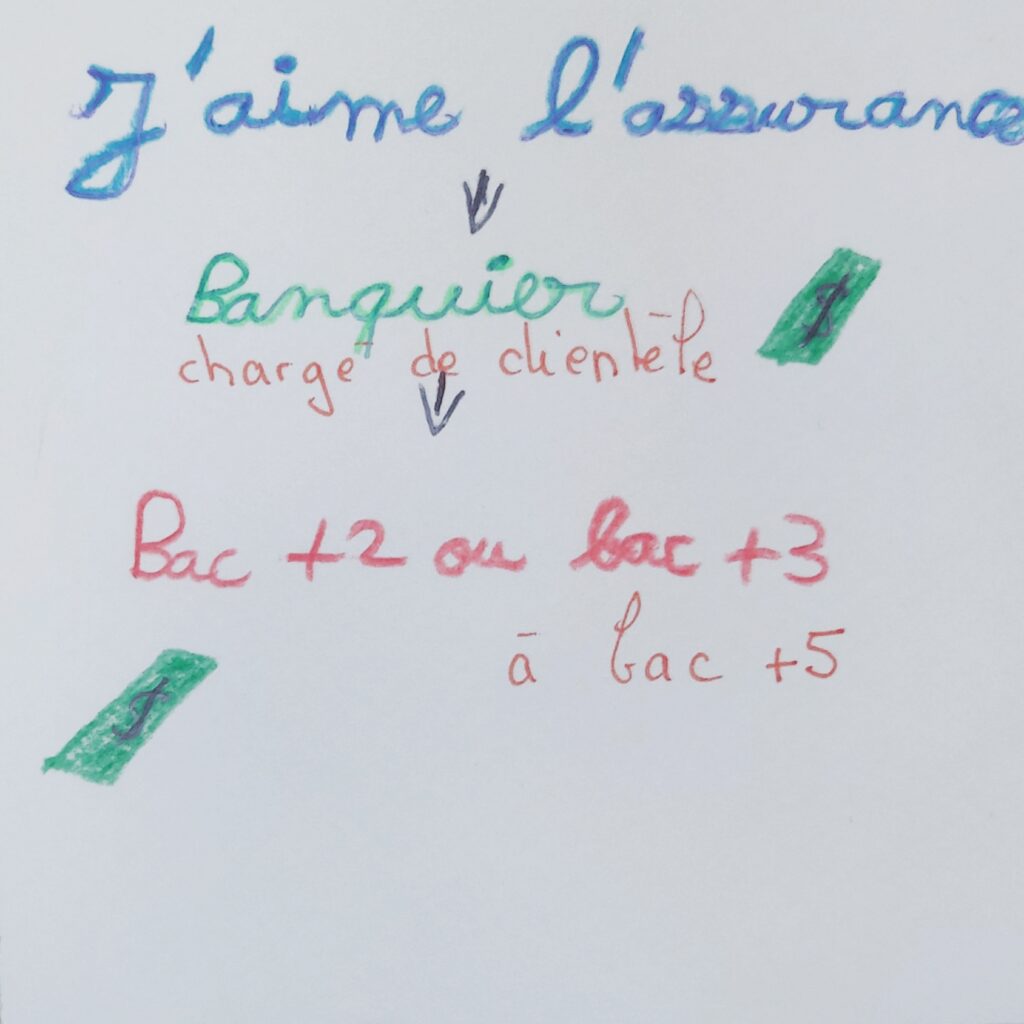 J'aime l'assurance
Banquier
$
chargé de clientèle
Bac +2 ou bac +3
à bac +5
$